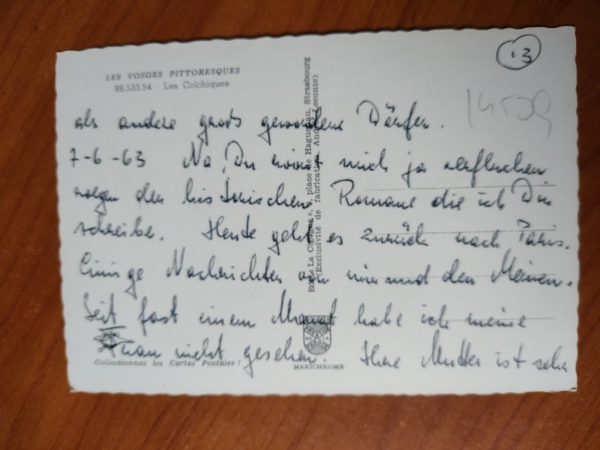 .3
LES VOSGES PITTORESQUES
88.533.54 - Les Colchiques
14509
als andere groß gewordene Dörfer.
7-6-63 Na, Du wirst mich ja verfluchen
wegen den historischen Romane die ich Dir
schreibe. Heute geht es zurück nach Paris.
Einige Nachrichten von mir und den Meinen.
Seit fast einem Monat habe ich meine
Frau nicht gesehen. Ihre Mutter ist sehr
Collectionnez les Cartes Postales !
MEXICHROME
place de Haguenau, Strasbourg
(Exclusivité de fabrication